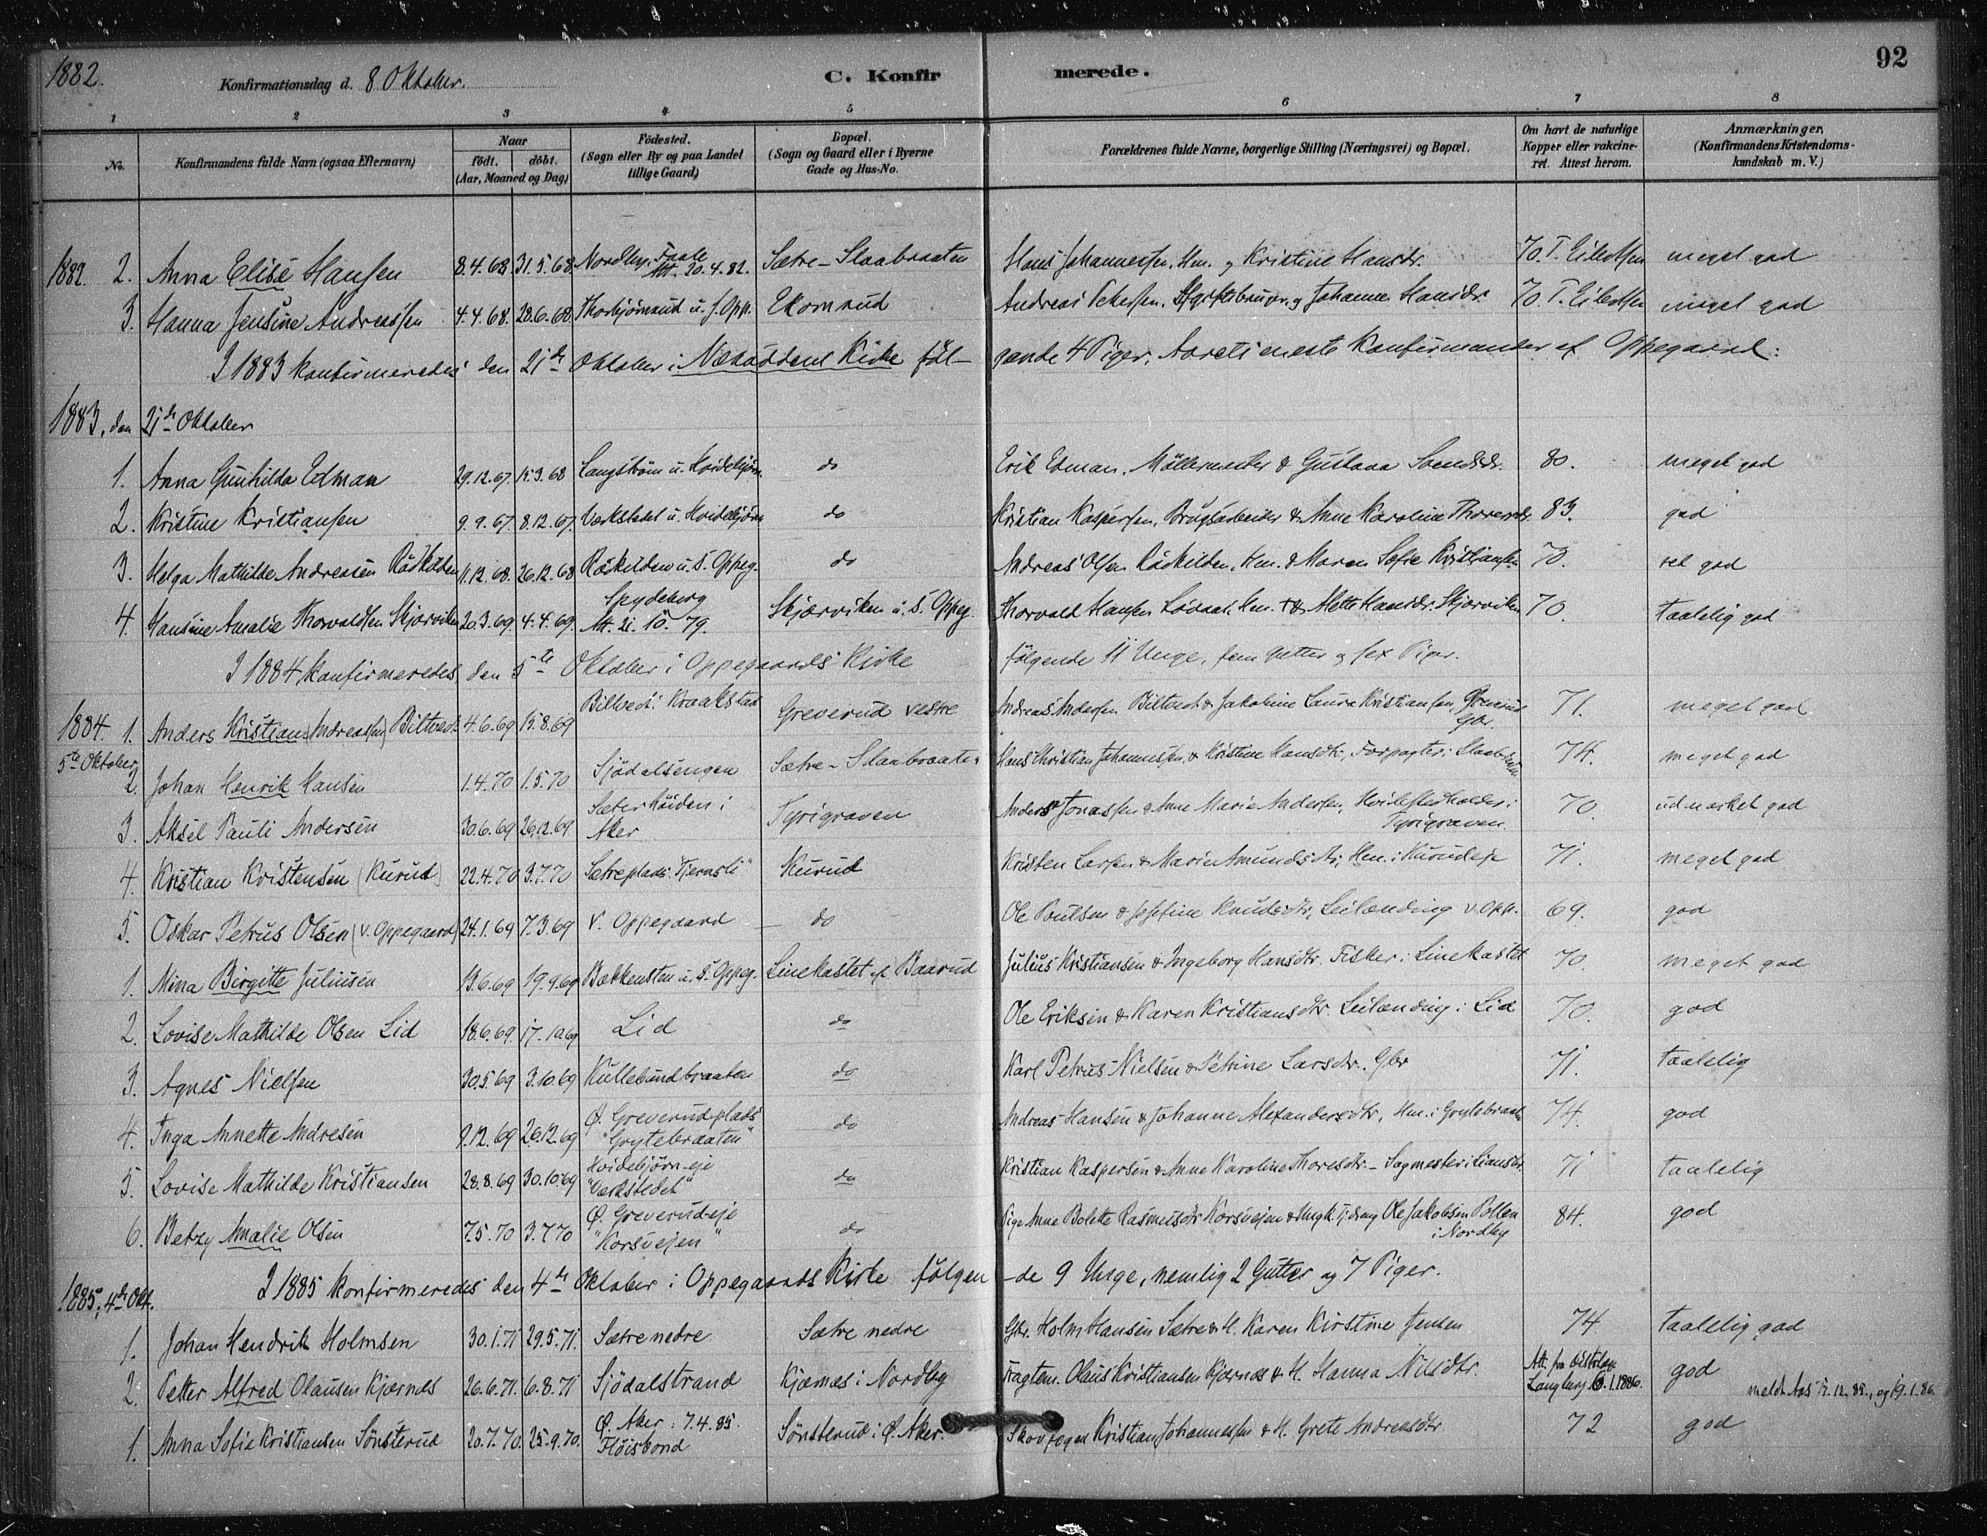 1882. Konfirmationsdag d. 8 Oktober. C. Konfirmerede. 92
1 2 3 4 5 6 7 8
No. Konfirmandens fulde Navn (ogsaa Efternavn) Naar födt. döbt. (Aar, Maaned og Dag) Födested. (Sogn eller By og paa Landet tillige Gaard) Bopæl. (Sogn og Gaard eller i Byerne Gade og Hus-No. Forældrenes fulde Navne, borgerlige Stilling (Næringsvei) og Bopæl. Om havt de naturlige Kopper eller vakcineret. Attest herom. Anmærkninger, (Konfirmandens Kristendomskundskab m. V.)
1882. 2. Anna Elise Hansen 8.4.68 31.5.68 Nordby. Att. 20.4.82. Sætre-Slaabraaten Hans Johannesen, Hm. og Kristine Hansdr. 70. T. Eilertsen meget god
3. Hanna Jensine Andreassen 4.4.68. 28.6.68 Thorbjørnsrud u. S. Opp. Ekornrud Andreas Petersen, og Johanne Hansdr. 70 T. Eilertsen meget god
I 1883 konfirmeredes den 21de Oktober i Næsoddens Kirke følgende 4 Piger, Aarets eneste Konfirmander af Oppegaard:
1883, den 21de Oktober
1. Anna Gunhilda Edman 29.12.67 15.3.68 Langstrøm u. Hvidebjørn do Erik Edman, Møllermester & Gustava Svendsdr. 80. meget god
2. Kristine Kristiansen 9.9.67 8.12.67. Værkstedet u. Hvidebjørn do Kristian Kaspersen, Brugsarbeider & Anne Karoline Thoresdr. 83. god
3. Helga Mathilde Andreasen Rödkilden 11.12.68. 26.12.68 Rödkilden u. S. Oppeg. do Andreas Olsen Rödkilden, Hm. & Maren Sofie Kristiansen 70. ret god
4. Hansine Amalie Thorvaldsen Skjærviken 20.3.69 4.4.69. Spydeberg Att. 21.10.79. Skjærviken u. S. Oppeg. Thorvald Hansen Hm. & Mette Hansdr. Skjærviken 70. taalelig god
I 1884 konfirmeredes den 5te Oktober i Oppegaards Kirke følgende 11 Unge, fem Gutter og sex Piger.
1884. 1. Anders Kristian (Andreassen) Biltvedt 4.6.69 15.8.69 Biltvedt i Kraakstad Greverud vestre Andreas Andersen Biltvedt & Jakobine Laura Kristiansen, Greverud Gbr. 71. meget god
5te Oktober
2. Johan Henrik Hansen 1.4.70 1.5.70 Sjödalsengen Sætre-Slaabraaten Hans Kristian Johannesen & Kristine Hansdtr, Forpagter i Slaabraaten 74. meget god
3. Aksel Pauli Andersen 30.6.69 26.12.69 Sæterhöiden i Aker Tyrigraven Anders Jonassen & Anne Marie Andersen, Hvilestedholder i Tyrigraven 70. udmærket god
4. Kristian Kristensen (Kurud) 22.4.70 3.7.70 Sætreplads "Tjernsli" Kurud Kristen Larsen & Marie Amundsdtr, Hm. i Kurudeje 71. meget god
5. Oskar Petrus Olsen (V. Oppegaard) 24.1.69 7.3.69 V. Oppegaard do Ole Poulsen & Josefine Knudsdtr, Leilænding V. Opp. 69. god
1. Mina Birgitte Juliusen 13.6.69 19.9.69 Bækkensten u. S. Oppeg. Linekastet af Baarud Julius Kristiansen & Ingeborg Hansdtr. Fisker i Linekastet 70. meget god
2. Lovise Mathilde Olsen Lid 18.6.69 17.10.69 Lid do Ole Eriksen & Karen Kristiansdtr. Leilænding i Lid 70. god
3. Agnes Nielsen 30.5.69 3.10.69 Kullebundbraaten do Karl Petrus Nielsen & Petrine Larsdtr. Gbr 71. taalelig
4. Inga Annette Andresen 9.12.69 26.12.69 Ø. Greverudplads "Grytebraaten" do Andreas Hansen & Johanne Alexandersdtr, Hm. i Grytebraaten 74. god
5. Lovise Mathilde Kristiansen 28.8.69 30.10.69 Hvidebjørn-eje "Værkstedet" do Kristian Kaspersen & Anne Karoline Thoresdtr - Sagmester i Liansbr. 71 taalelig
6. Betzy Amalie Olsen 7.5.70 3.7.70 Ø. Greverudeje "Korsvejen" do Pige Anne Bolette Rasmusdtr Korsvejen & Ungk. Tjdreng Ole Jakobsen Pollen i Nordby 84. god
1885, 4de Okt. I 1885 konfirmeredes den 4de Oktober i Oppegaards Kirke følgende 9 Unge, nemlig 2 Gutter og 7 Piger.
1. Johan Hendrik Holmsen 30.1.71 29.5.71. Sætre nedre Sætre nedre Gbr. Holm Hansen Sætre & H. Karen Kirstine Jensen 74 taalelig god
2. Petter Alfred Olausen Kjærnes 26.6.71. 6.8.71 Sjödalstrand Kjærnes i Nordby Fragtem. Olaus Kristiansen Kjærnes & H. Hanna Nilsdtr. Att. fra Distrlæge Langberg 6.1.1886. god meldt Aas 17.12.85, og 19.1.86.
1. Anna Sofie Kristiansen Sönsterud 20.7.70. 25.9.70. Ø. Aker: 7.4.85. Fløisbond Sönsterud i Ø. Aker. Skovfoged Kristian Johannessen & H. Grete Andreasdtr 72 god